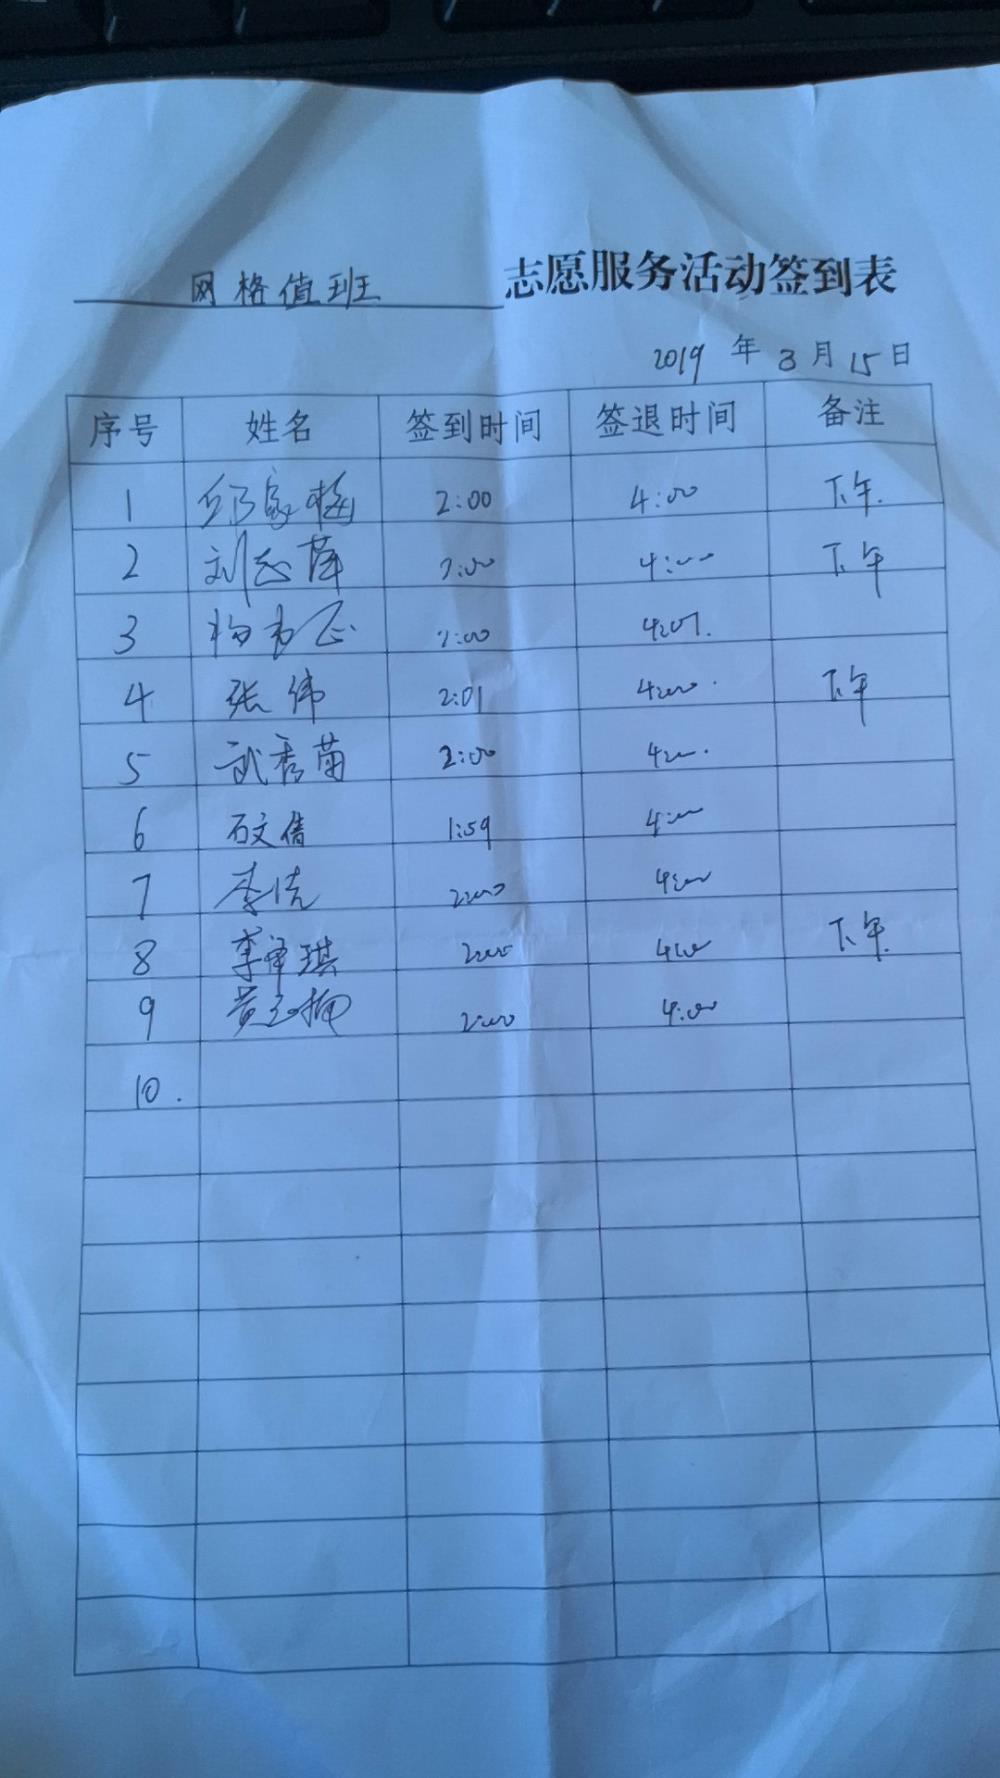 网格值班 志愿服务活动签到表
2019 年 3 月 15 日
序号 姓名 签到时间 签退时间 备注
1 邱家梅 2:00 4:00 下午.
2 刘志萍 2:00 4:00 下午
3 2:00 4:01.
4 张伟 2:01 4:00 下午
5 武秀菊 2:00 4:00.
6 石文倩 1:59 4:00
7 李洁 2:00 4:00
8 李泽琪 2:00 4:00 下午.
9 黄 2:00 4:00
10.